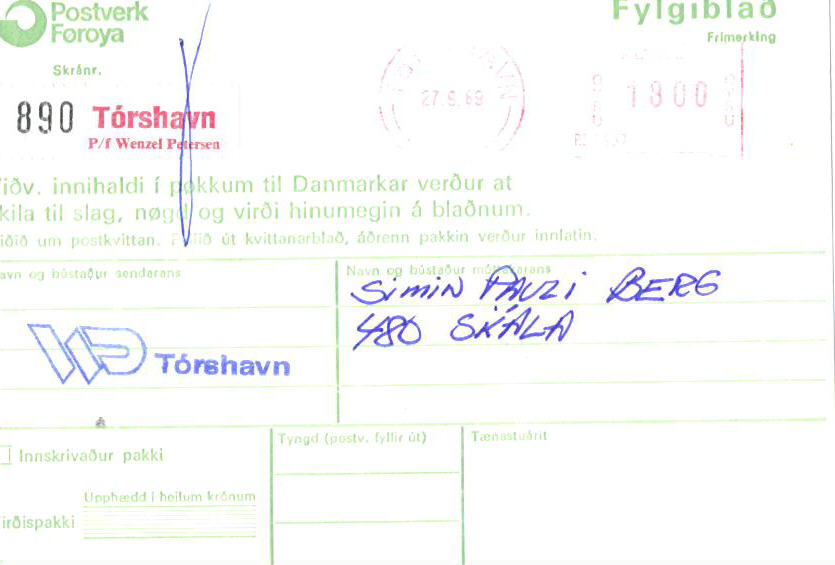 Postverk
Føroya
Fylgiblað
Frímerking
Skránr.
27.9.89
1800
890 Tórshavn
P/f Wenzel Petersen
iðv. innihaldi í pøkkum til Danmarkar verður at
kila til slag, nøgd og virði hinumegin á blaðnum.
iðið um postkvittan. út kvittanarblað, áðrenn pakkin verður innlatin.
avn og bústaður sendarans
Navn og bústaður móttakarans
Simin PAULI BERG
480 SKÁLA
WP Tórshavn
Innskrivaður pakki
Tyngd (postv. fyllir út)
Tænastuárit
Upphædd í heilum krónum
irðispakki